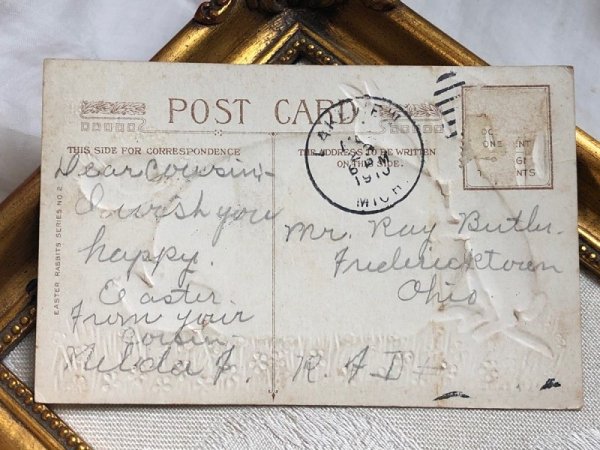 POST CARD
THIS SIDE FOR CORRESPONDENCE
THE ADDRESS TO BE WRITTEN
ON THIS SIDE.
LAKEVIEW
MICH
1910
EASTER RABBITS SERIES NO 2
Dear Cousin-
I wish you
happy.
Easter.
From your
Cousin.
Melda A.
Mr. Ray Butler.
Fredericktown
Ohio
R. F. D. 4